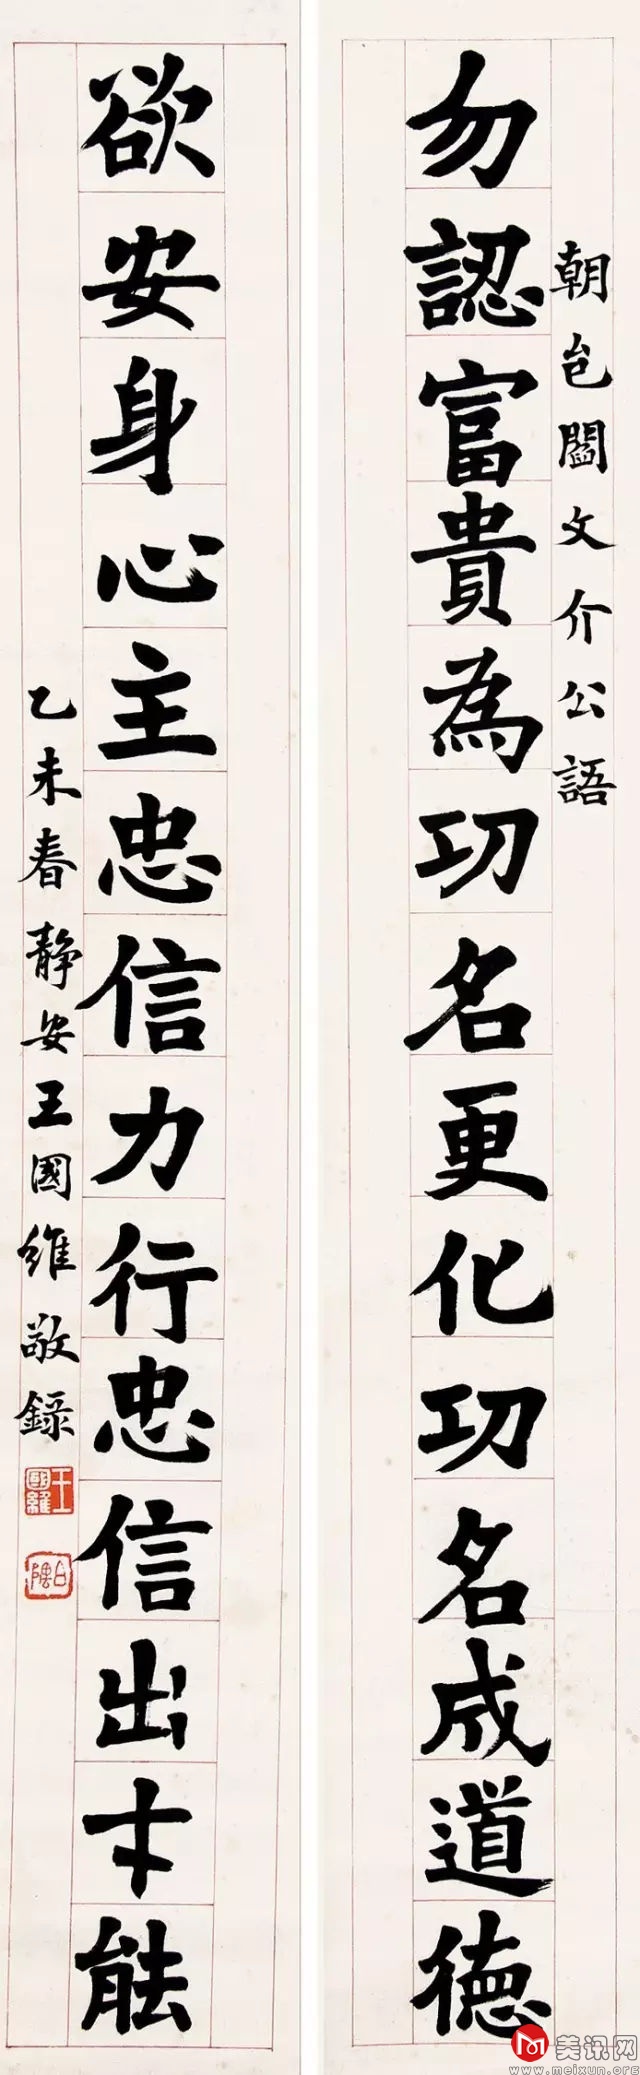 朝邑閻文介公語
勿認富貴為功名更化功名成道德
欲安身心主忠信力行忠信出才能
乙未春靜安王國維敬錄
王國維
美讯网
www.meixun.org